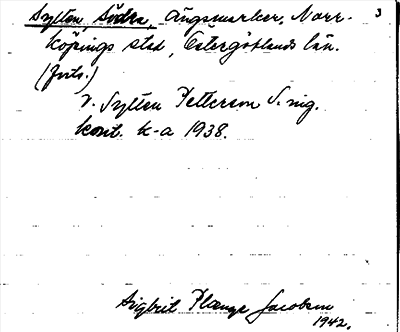 Sylten, Södra, ängsmarker, Norr- 3
köpings stad, Östergötlands län.
(forts.)
V. Sylten Petterson S. mg.
kont. k-a 1938.
Sigbrit Plænge Jacobson
1942.